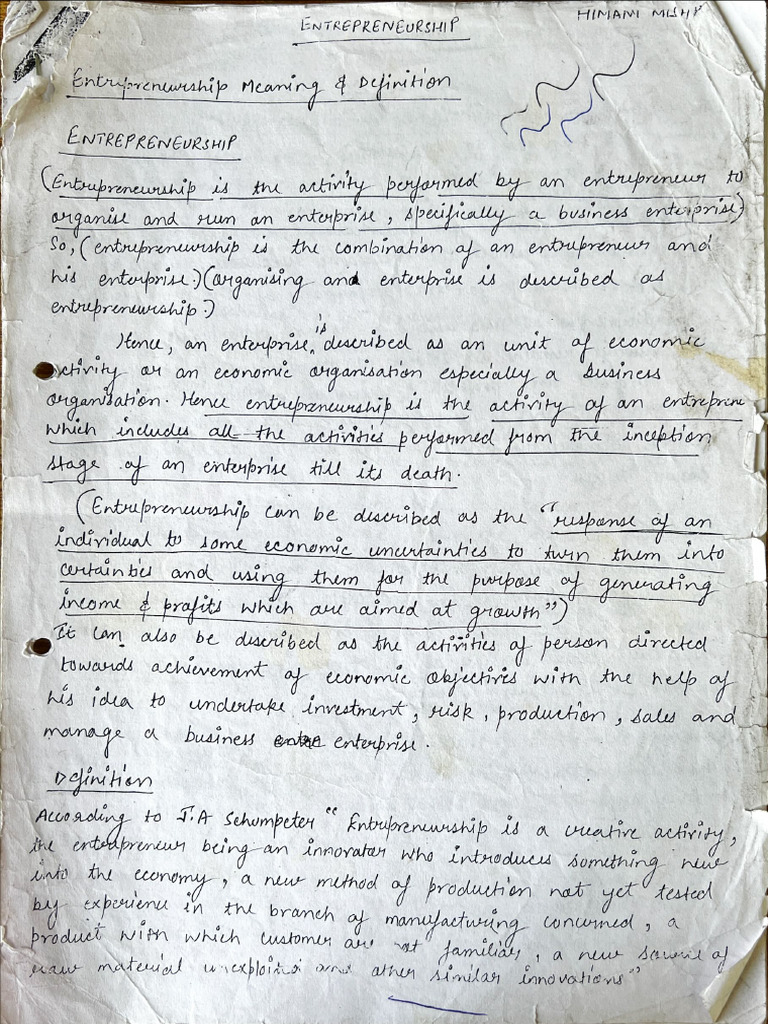 ENTREPRENEURSHIP
HIMANI
Entrepreneurship Meaning & Definition
ENTREPRENEURSHIP
(Entrepreneurship is the activity performed by an entrepreneur to
organise and run an enterprise, specifically a business enterprise)
So, (entrepreneurship is the combination of an entrepreneur and
his enterprise.) (organising and enterprise is described as
entrepreneurship.)
Hence, an enterprise is described as an unit of economic
ctivity or an economic organisation especially a business
organisation. Hence entrepreneurship is the activity of an entreprene
which includes all the activities performed from the inception
stage of an enterprise till its death.
(Entrepreneurship can be described as the "response of an
individual to some economic uncertainties to turn them into
certainties and using them for the purpose of generating
income & profits which are aimed at growth")
It can also be described as the activities of person directed
towards achievement of economic objectives with the help of
his idea to undertake investment, risk, production, sales and
manage a business enterprise.
Definition
According to J.A Schumpeter "Entrepreneurship is a creative activity,
the entrepreneur being an innovator who introduces something new
into the economy, a new method of production not yet tested
by experience in the branch of manufacturing concerned, a
product with which customer are familiar, a new source of
raw material and other similar innovations"